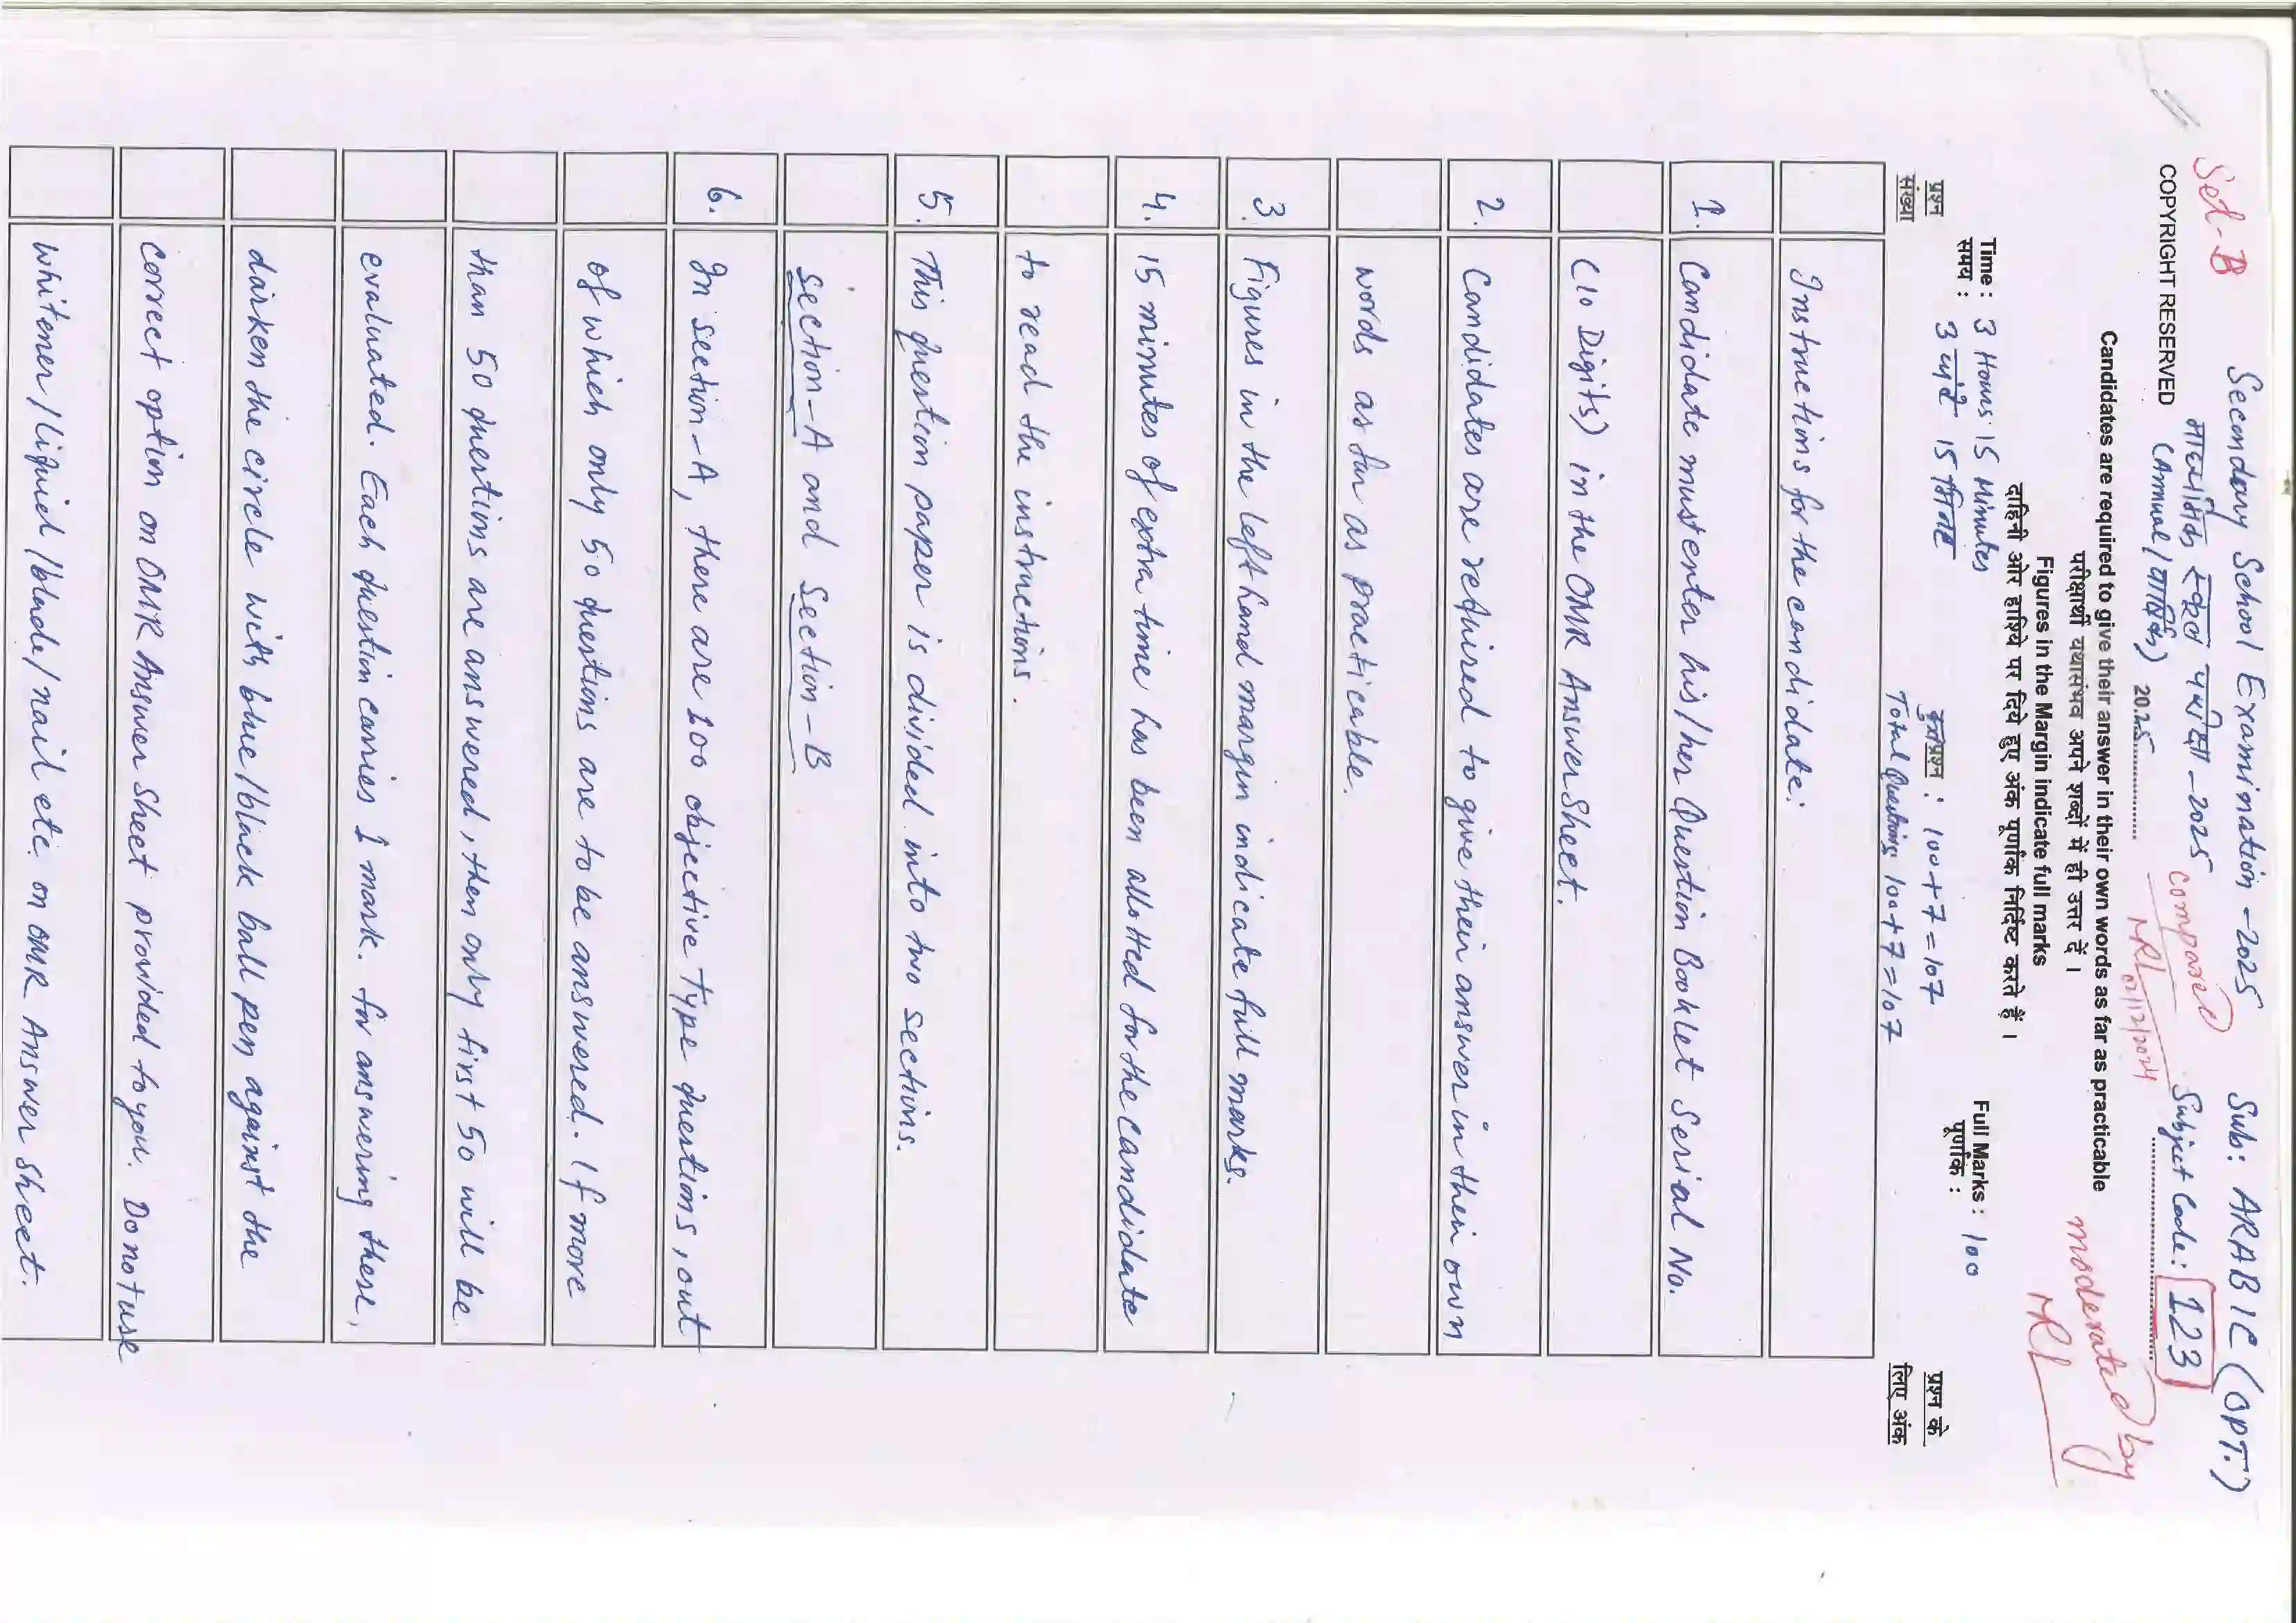 Secondary School Examination - 2025 Sub: ARABIC (OPT.)
माध्यमिक स्कूल परीक्षा - 2025
Subject Code: 123
Set-B
(Annual/वार्षिक)
COPYRIGHT RESERVED
2025
Compared
MRL 02/12/2024
moderated by
MRL
Candidates are required to give their answer in their own words as far as practicable
परीक्षार्थी यथासंभव अपने शब्दों में ही उत्तर दें ।
Figures in the Margin indicate full marks
दाहिनी ओर हाशिये पर दिये हुए अंक पूर्णांक निर्दिष्ट करते हैं ।
Time : 3 Hours 15 Minutes
समय : 3 घंटे 15 मिनट
Full Marks : 100
पूर्णांक :
कुल प्रश्न : 100+7=107
Total Questions 100+7=107
प्रश्न संख्या
प्रश्न के लिए अंक
Instructions for the candidate:
1. Candidate must enter his/her Question Booklet Serial No.
(10 Digits) in the OMR Answer Sheet.
2. Candidates are required to give their answer in their own
words as far as practicable.
3. Figures in the left hand margin indicate full marks.
4. 15 minutes of extra time has been allotted for the candidate
to read the instructions.
5. This question paper is divided into two sections.
Section-A and Section-B
6. In section-A, there are 100 objective type questions, out
of which only 50 questions are to be answered. If more
than 50 questions are answered, then only first 50 will be
evaluated. Each question carries 1 mark. for answering these,
darken the circle with blue/black ball pen against the
correct option on OMR Answer Sheet provided to you. Do not use
whitener/liquid/blade/nail etc. on OMR Answer Sheet.